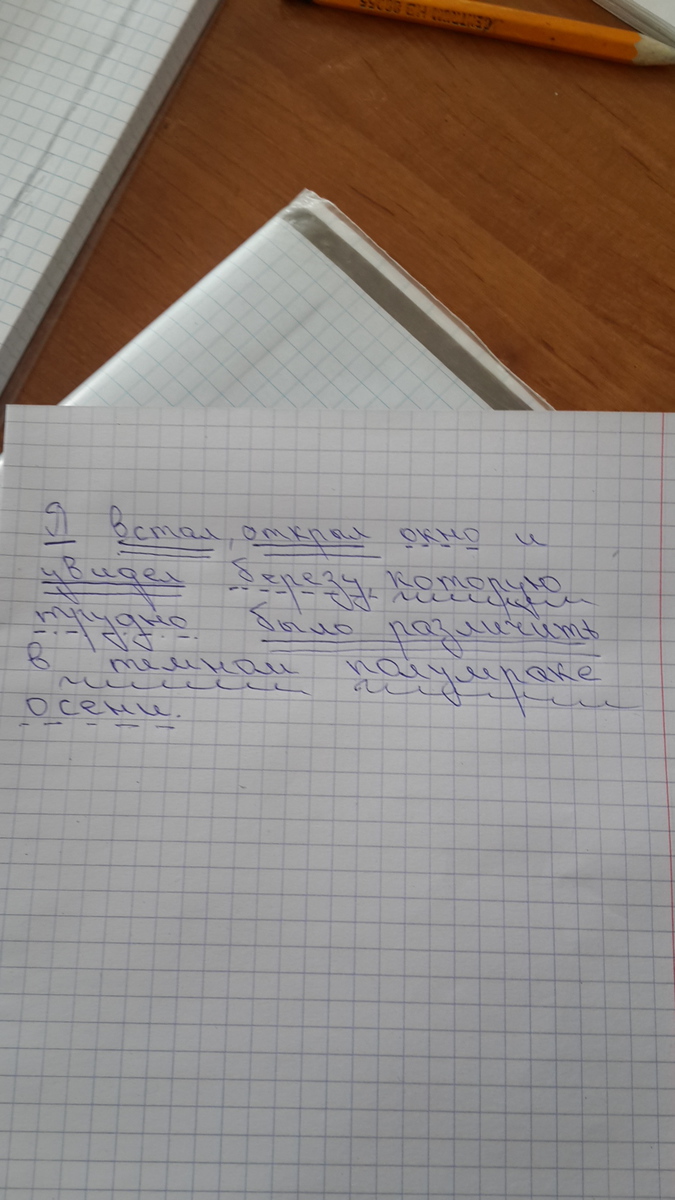 CENTRUM HB 80355
Я встал, открыл окно и
увидел березу, которую
трудно было различить
в темном полумраке
осени.